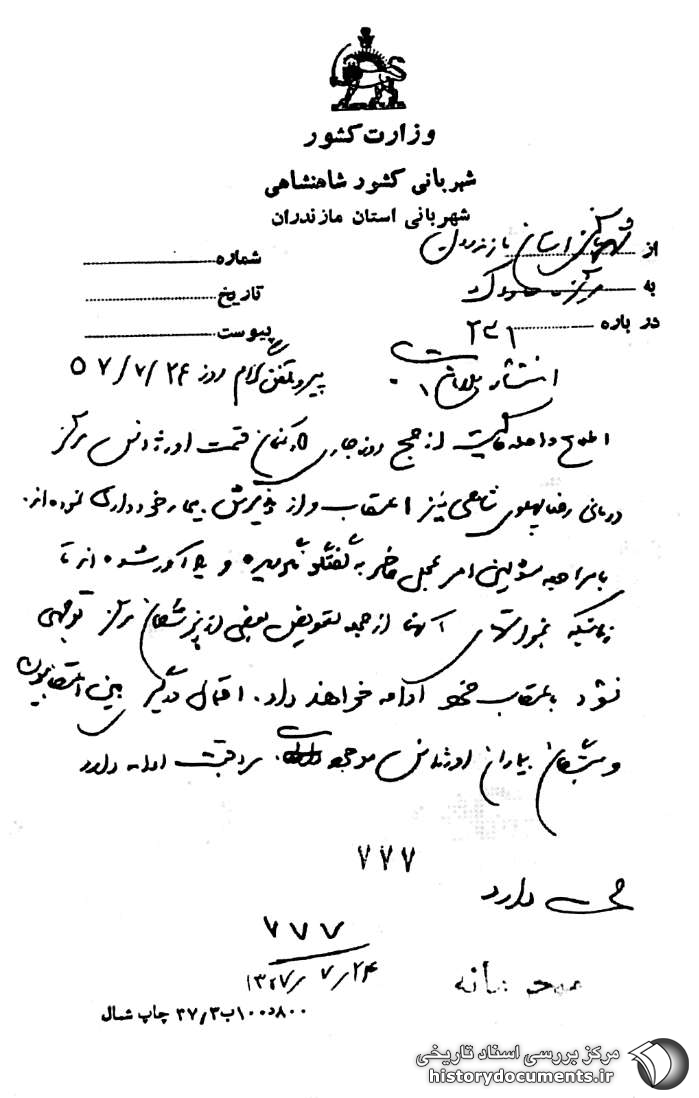 وزارت کشور
شهربانی کشور شاهنشاهی
شهربانی استان مازندران
از شهربانی استان مازندران
به
در باره ۲۳۱
شماره
تاریخ
پیوست
پیرو تلفنگرام روز ۵۷/۷/۲۴
اطلاع واصله حاکیست از صبح روز جاری کارکنان قسمت اورژانس مرکز
درمانی رضا پهلوی شاهی نیز اعتصاب و از پذیرش بیمار خودداری نموده‌اند.
با مراجعه مسئولین امر به گفتگو و یادآور شده‌اند تا
زمانیکه بخواسته‌های آنها از جمله تعویض بعضی از پزشکان مرکز توجهی
نشود باعتصاب خود ادامه خواهند داد. احتمال درگیری بین اعتصابیون
و بیماران اورژانس موجود مراقبت ادامه دارد
۷۷۷
۷۷۷
۲۴/۷/۱۳۵۷
محرمانه
۸۰۰د۱۰۰ب۴۷٫۳ چاپ شمال
مرکز بررسی اسناد تاریخی
historydocuments.ir